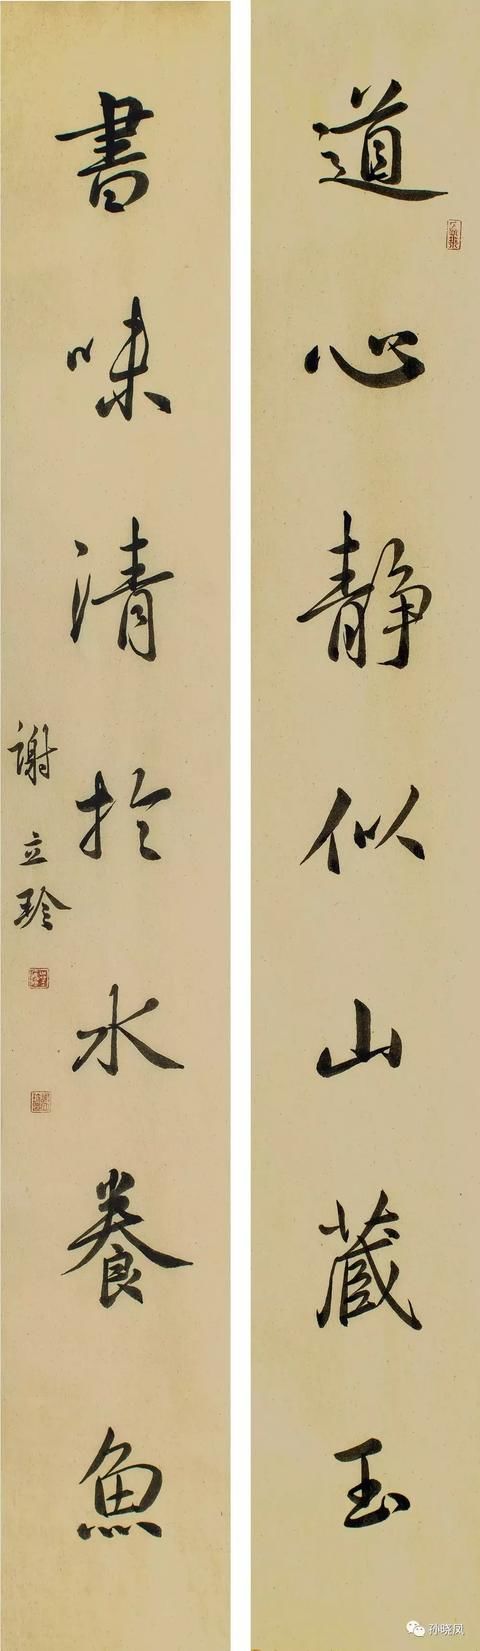 道心静似山藏玉
書味清扵水養魚
謝立珍
孙晓凤